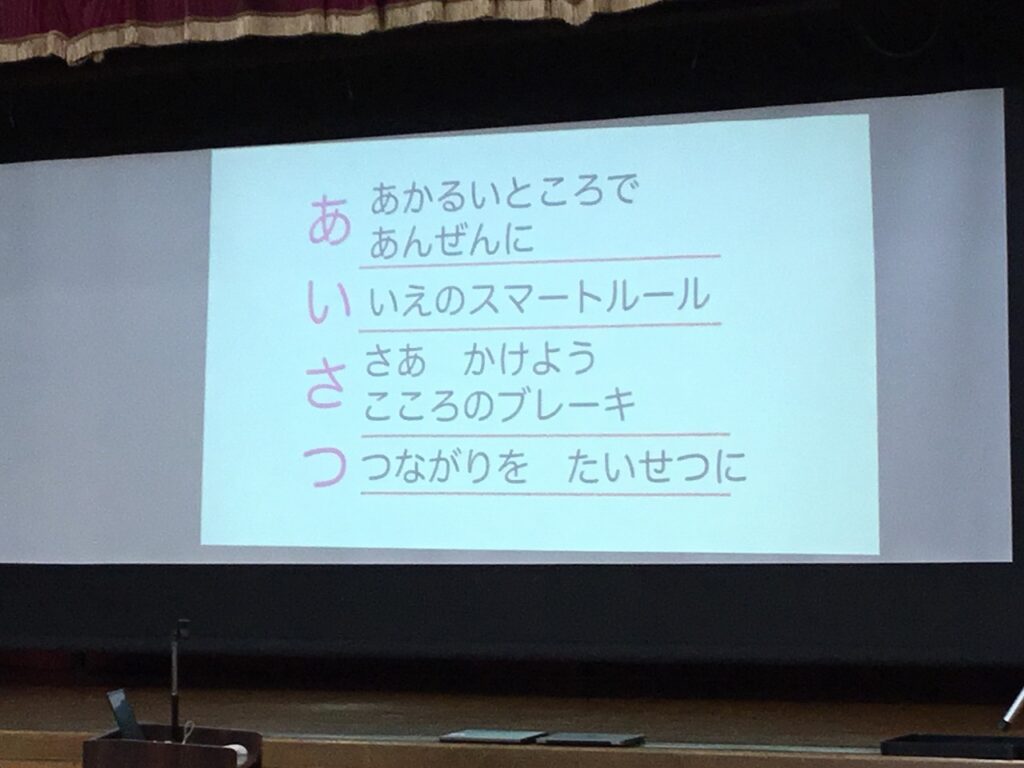 あ あかるいところで
あんぜんに
い いえのスマートルール
さ さあ　かけよう
こころのブレーキ
つ つながりを　たいせつに